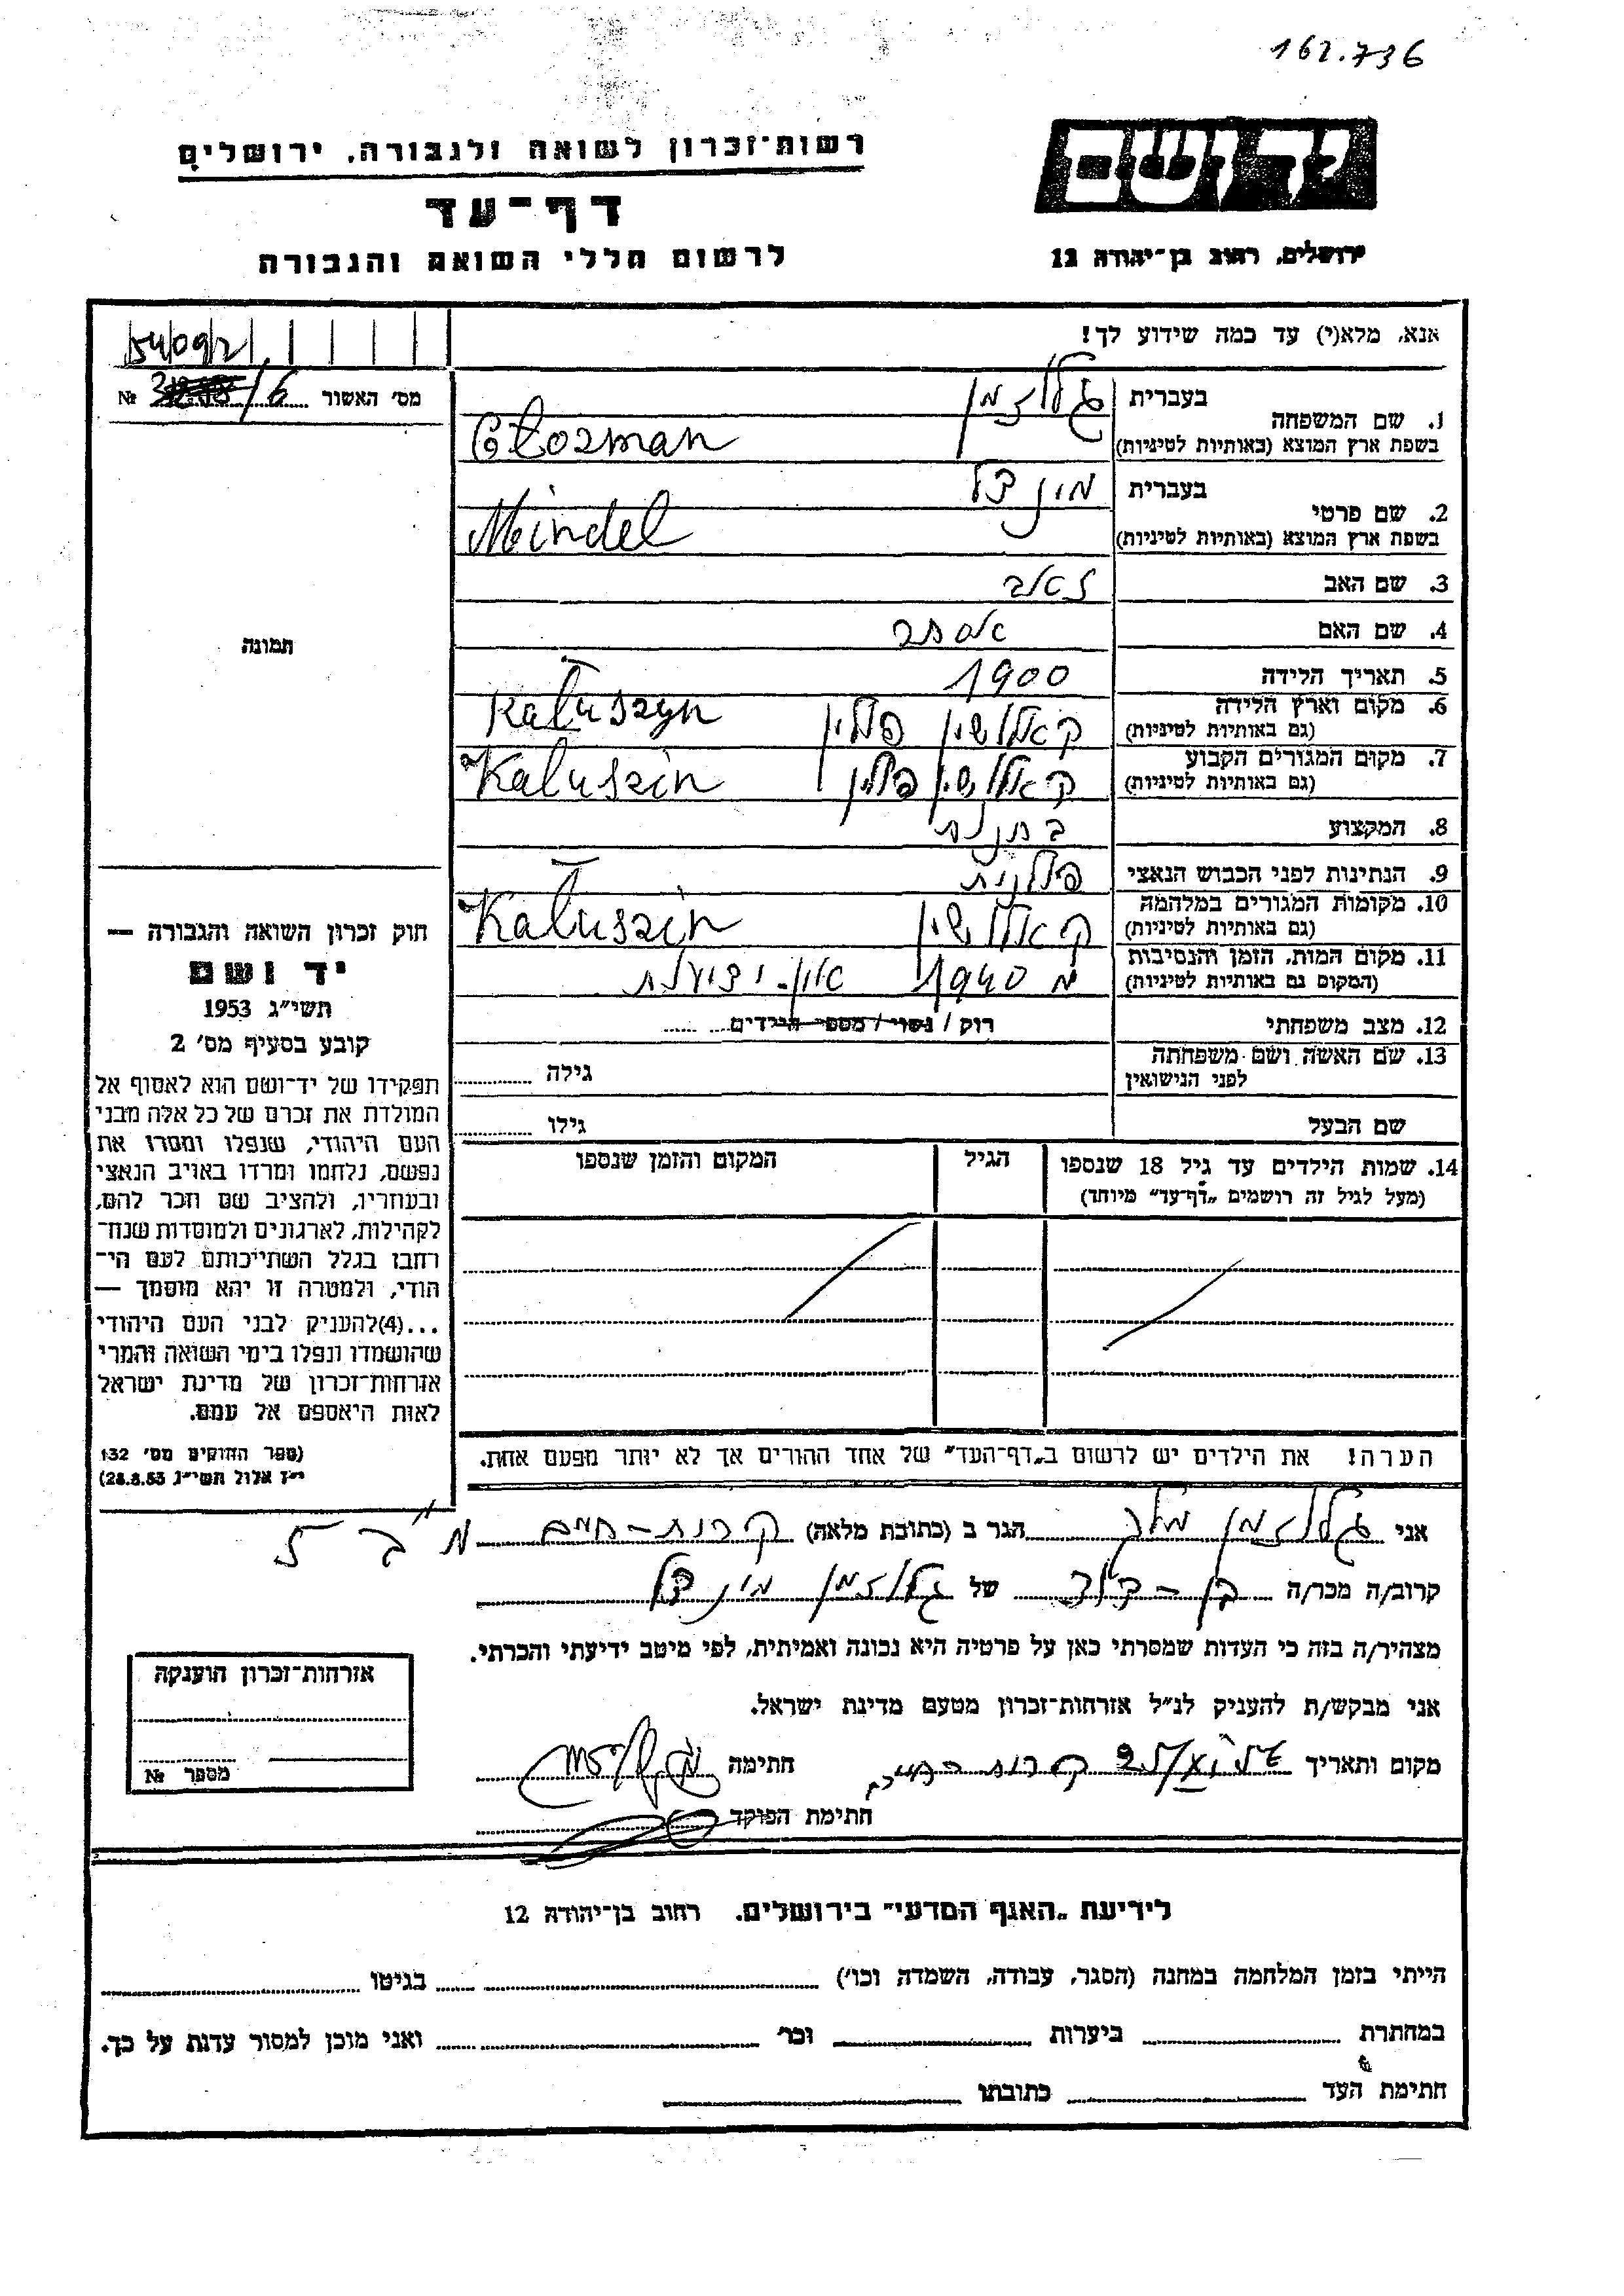 162.736
רשות־זכרון לשואה ולגבורה, ירושלים
יד ושם
דף־עד
לרשום חללי השואה והגבורה
ירושלים, רחוב בן־יהודה 12
אנא, מלא(י) עד כמה שידוע לך!
מס' האשור № 6/
1. שם המשפחה
בעברית גלוזמן
בשפת ארץ המוצא (באותיות לטיניות) Głozman
2. שם פרטי
בעברית מינדל
בשפת ארץ המוצא (באותיות לטיניות) Meindel
3. שם האב זאב
4. שם האם אסתר
5. תאריך הלידה 1900
6. מקום וארץ הלידה קאלושין פולין Kałuszyn
(גם באותיות לטיניות)
7. מקום המגורים הקבוע קאלושין פולין Kaluszin
(גם באותיות לטיניות)
8. המקצוע
9. הנתינות לפני הכבוש הנאצי פולנית
10. מקומות המגורים במלחמה קאלושין Kałuszin
(גם באותיות לטיניות)
11. מקום המות, הזמן והנסיבות מ 1940 אין ידיעות
(המקום גם באותיות לטיניות)
12. מצב משפחתי רוק / נשוי / מספר הילדים
13. שם האשה ושם משפחתה
לפני הנישואין גילה
שם הבעל גילו
14. שמות הילדים עד גיל 18 שנספו הגיל המקום והזמן שנספו
(מעל לגיל זה רושמים „דף־עד" מיוחד)
הערה! את הילדים יש לרשום ב„דף־העד" של אחד ההורים אך לא יותר מפעם אחת.
תמונה
חוק זכרון השואה והגבורה —
יד ושם
תשי"ג 1953
קובע בסעיף מס' 2
תפקידו של יד־ושם הוא לאסוף אל
המולדת את זכרם של כל אלה מבני
העם היהודי, שנפלו ומסרו את
נפשם, נלחמו ומרדו באויב הנאצי
ובעוזריו, ולהציב שם וזכר להם,
לקהילות, לארגונים ולמוסדות שנח־
רבו בגלל השתייכותם לעם הי־
הודי, ולמטרה זו יהא מוסמך —
...(4)להעניק לבני העם היהודי
שהושמדו ונפלו בימי השואה והמרי
אזרחות־זכרון של מדינת ישראל
לאות היאספם אל עמם.
(ספר החוקים מס' 132
י"ז אלול תשי"ג 28.8.53)
אני גלוזמן מלך הגר ב (כתובת מלאה) קרית-חיים
קרוב/ה מכר/ה בן-דוד של גלוזמן מינדל
מצהיר/ה בזה כי העדות שמסרתי כאן על פרטיה היא נכונה ואמיתית, לפי מיטב ידיעתי והכרתי.
אני מבקש/ת להעניק לנ"ל אזרחות־זכרון מטעם מדינת ישראל.
מקום ותאריך קרית חיים חתימה
חתימת הפוקד
אזרחות־זכרון הוענקה
מספר №
לידיעת „האגף המדעי" בירושלים. רחוב בן־יהודה 12
הייתי בזמן המלחמה במחנה (הסגר, עבודה, השמדה וכו') בגיטו
במחתרת ביערות וכו' ואני מוכן למסור עדות על כך.
חתימת העד כתובתו